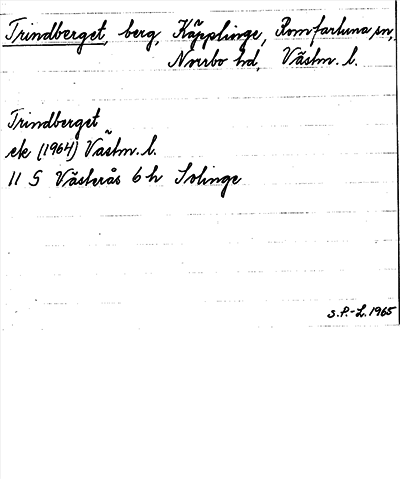 Trindberget, berg, Käpplinge, Romfartuna sn,
Norrbo hd, Västm. l.
Trindberget
ek (1964) Västm. l.
11 G Västerås 6 h Solinge
S.P.-L. 1965